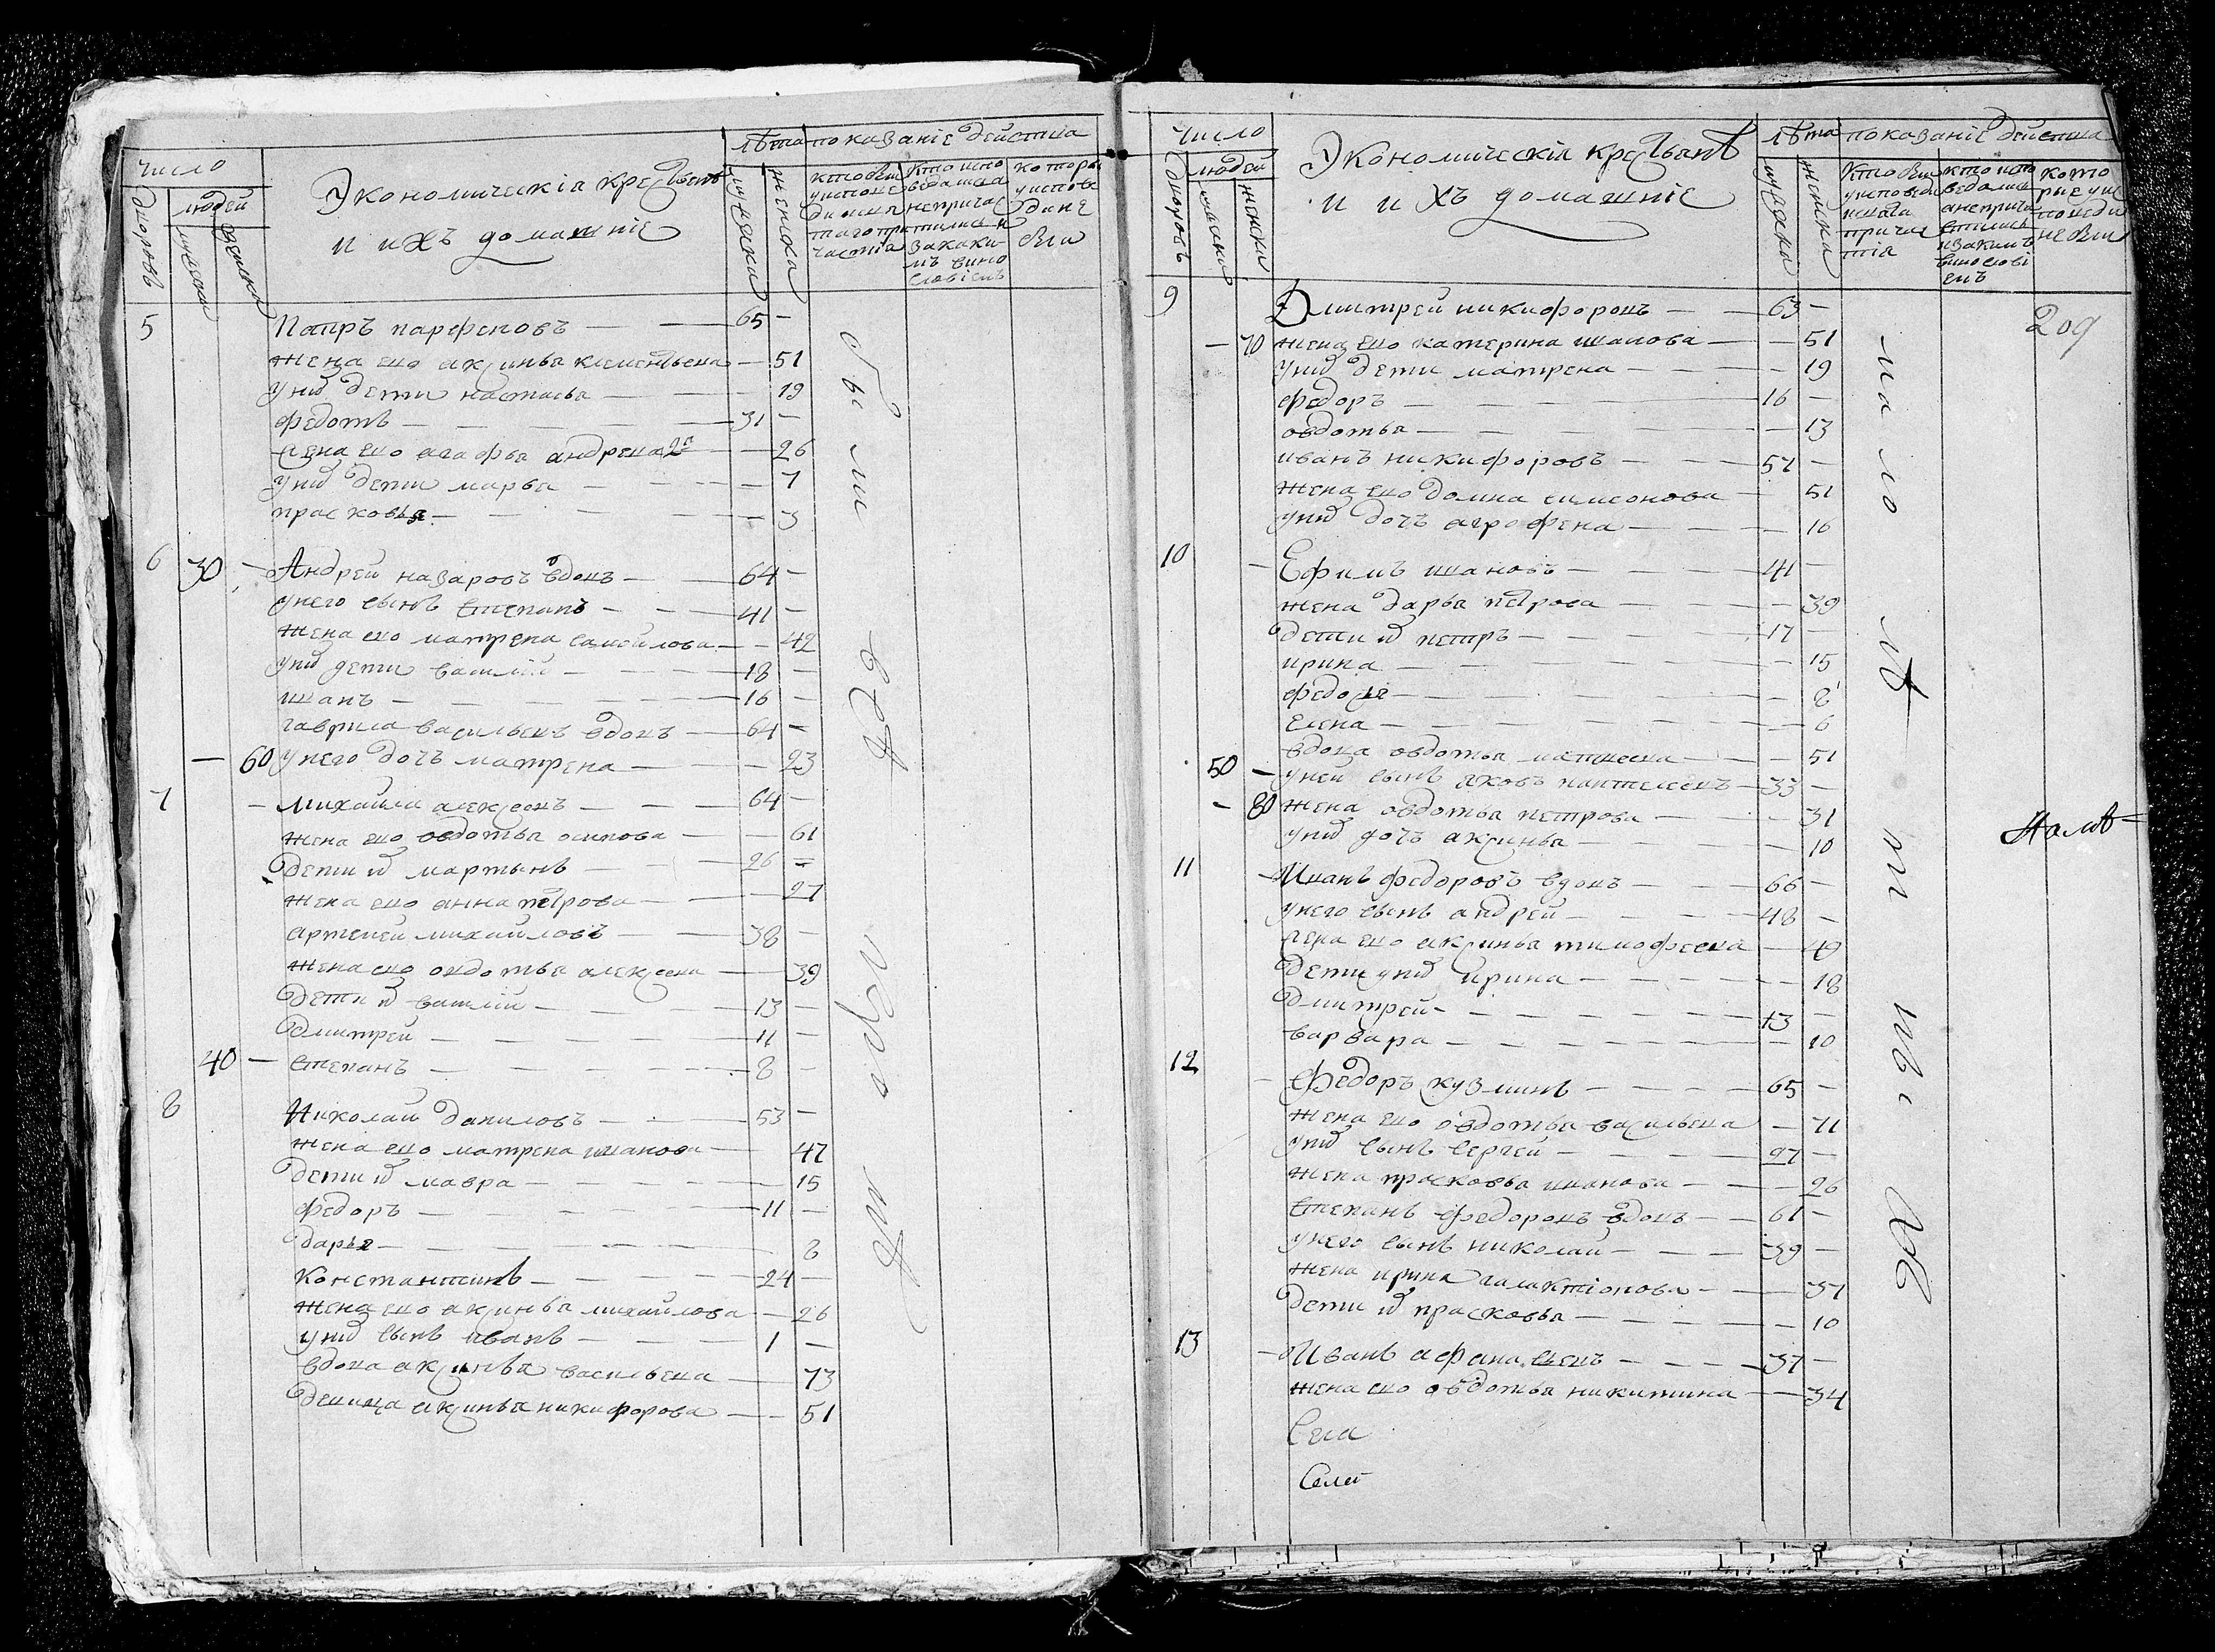 число
дворовъ
людей
мужеска
женска
Экономическія крестьянѣ
и ихъ домашніе
лѣта
мужеска
женска
показаніе действа
5 Пётръ парфеновъ — 65 —
жена ево аксинья клементьева — 51
у них дети настасья — 19
федотъ — 31 —
жена ево агафья андреева — 26
у них дети марѳа — 7
прасковья — 3
6 30 — Андрей назаровъ вдовъ — 64 —
у него сынъ степанъ — 41 —
жена ево матрена самойлова — 42
у них дети василій — 18 —
иванъ — 16 —
гаврила васильевъ вдовъ — 64 —
— 60 у него дочь матрена — 23
7 — михайла алексеевъ — 64 —
жена ево овдотья осипова — 61
дети их мартынъ — 26 —
жена ево анна петрова — 27
артемей михайловъ — 38 —
жена ево овдотья алексеева — 39
дети их василій — 13 —
дмитрей — 11 —
40 — степанъ — 8 —
8 Николай даниловъ — 53 —
жена ево матрена иванова — 47
дети их мавра — 15
федоръ — 11 —
дарья — 8
константинъ — 24 —
жена ево аксинья михайлова — 26
у них сынъ иванъ — 1 —
вдова аксинья васильева — 73
девица аксинья никифорова — 51
число
дворовъ
людей
мужеска
женска
Экономическія крестьянѣ
и ихъ домашніе
лѣта
мужеска
женска
показаніе действа
209
9 Дмитрей никифоровъ — 63 —
— 70 жена ево катерина иванова — 51
у них дети матрена — 19
федоръ — 16 —
овдотья — 13
иванъ никифоровъ — 57 —
жена ево домна симеонова — 51
у них дочь агрофена — 16
10 — Ефимъ ивановъ — 41 —
жена дарья петрова — 39
дети их петръ — 17 —
ирина — 15
федосья — 8
елена — 6
вдова овдотья матвеева — 51
50 — у ней сынъ яковъ пантелеевъ — 33 —
— 80 жена овдотья петрова — 31
у них дочь аксинья — 10
11 — Иванъ федоровъ вдовъ — 66 —
у него сынъ андрей — 48 —
жена ево аксинья тимофеева — 49
дети у них ирина — 18
дмитрей — 13 —
варвара — 10
12 — Федоръ кузминъ — 65 —
жена ево овдотья васильева — 71
у них сынъ сергей — 27 —
жена прасковья иванова — 26
степанъ федоровъ вдовъ — 61 —
у него сынъ николай — 39 —
жена ирина галактіонова — 37
дети их прасковья — 10
13 — Иванъ афанасьевъ — 37 —
жена ево овдотья никитина — 34
Села